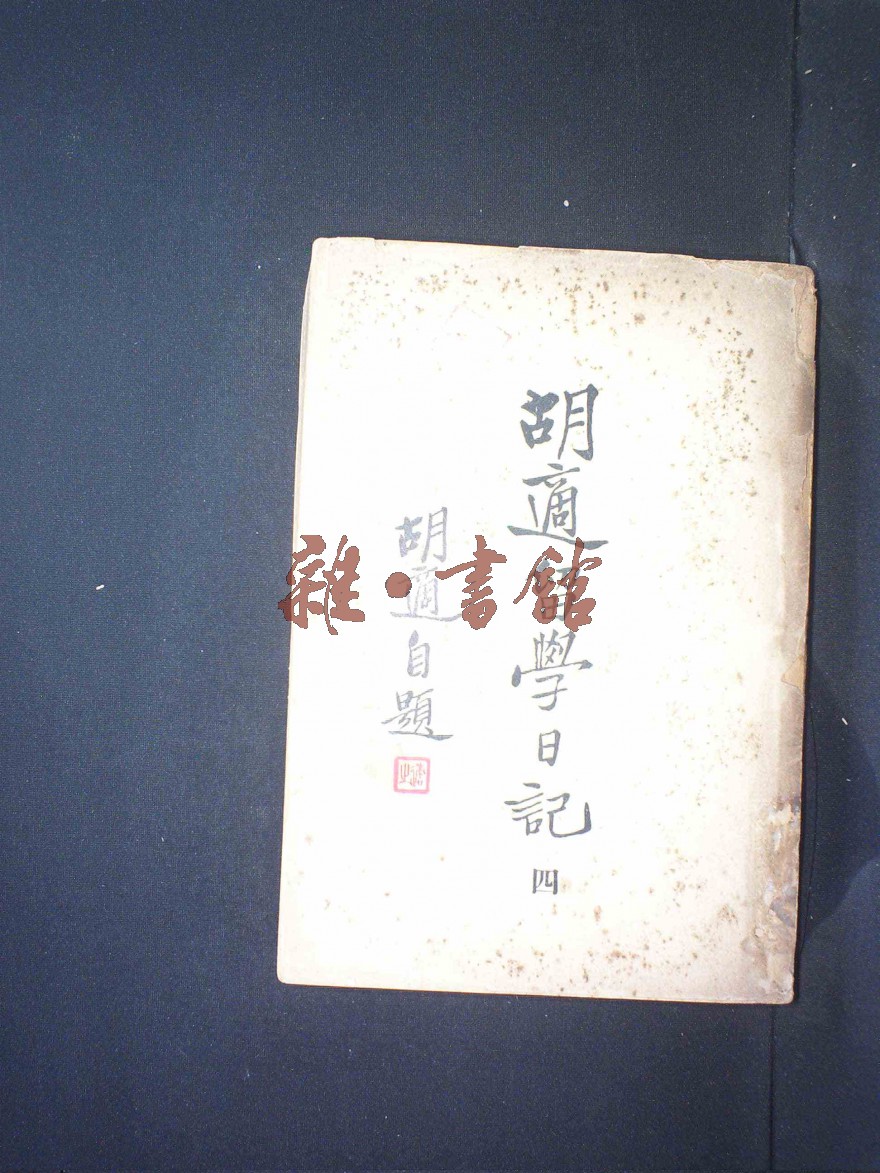 胡適留學日記
四
胡適自題
雜·書館